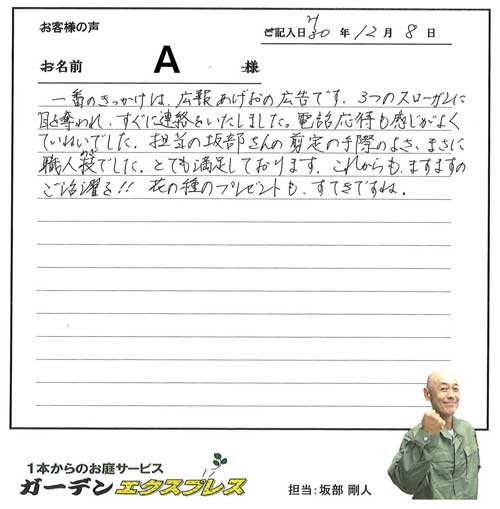 お客様の声
ご記入日 H30 年 12 月 8 日
お名前 A 様
一番のきっかけは、広報あげおの広告です。3つのスローガンに
目を奪われ、すぐに連絡をいたしました。電話応待も感じがよく
ていねいでした。担当の坂部さんの剪定の手際のよさ、まさに
職人技でした。とても満足しております。これからも、ますますの
ご活躍を!! 花の種のプレゼントも、すてきですね。
1本からのお庭サービス
ガーデンエクスプレス
担当:坂部 剛人